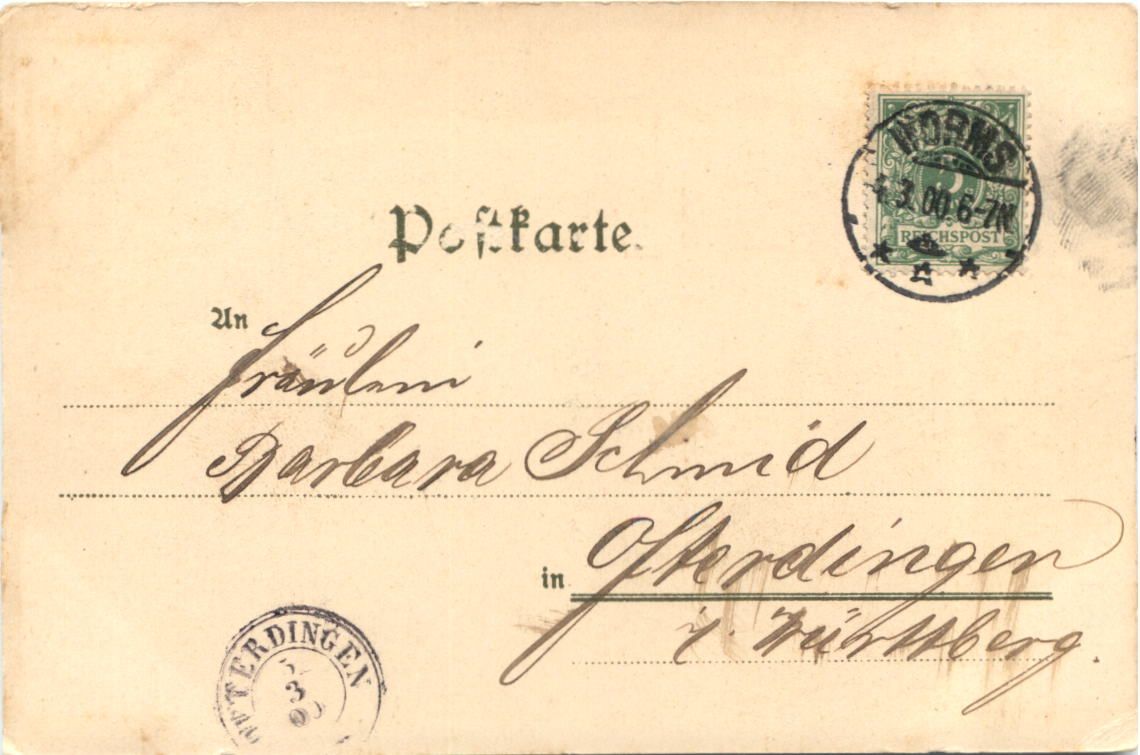 WORMS
3.00.6-7N.
REICHSPOST
Postkarte.
An
Fräulein
Barbara Schmid
in Ofterdingen
i. Württberg.
3
00